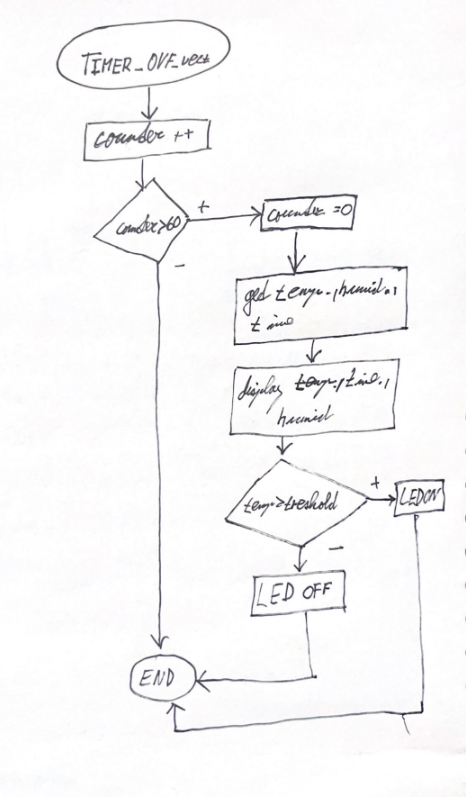 TIMER_OVF_vect
counter ++
counter>60
+
counter =0
-
get temp., humid.,
time
display temp., time.,
humid
temp>treshold
+
LEDON
-
LED OFF
END